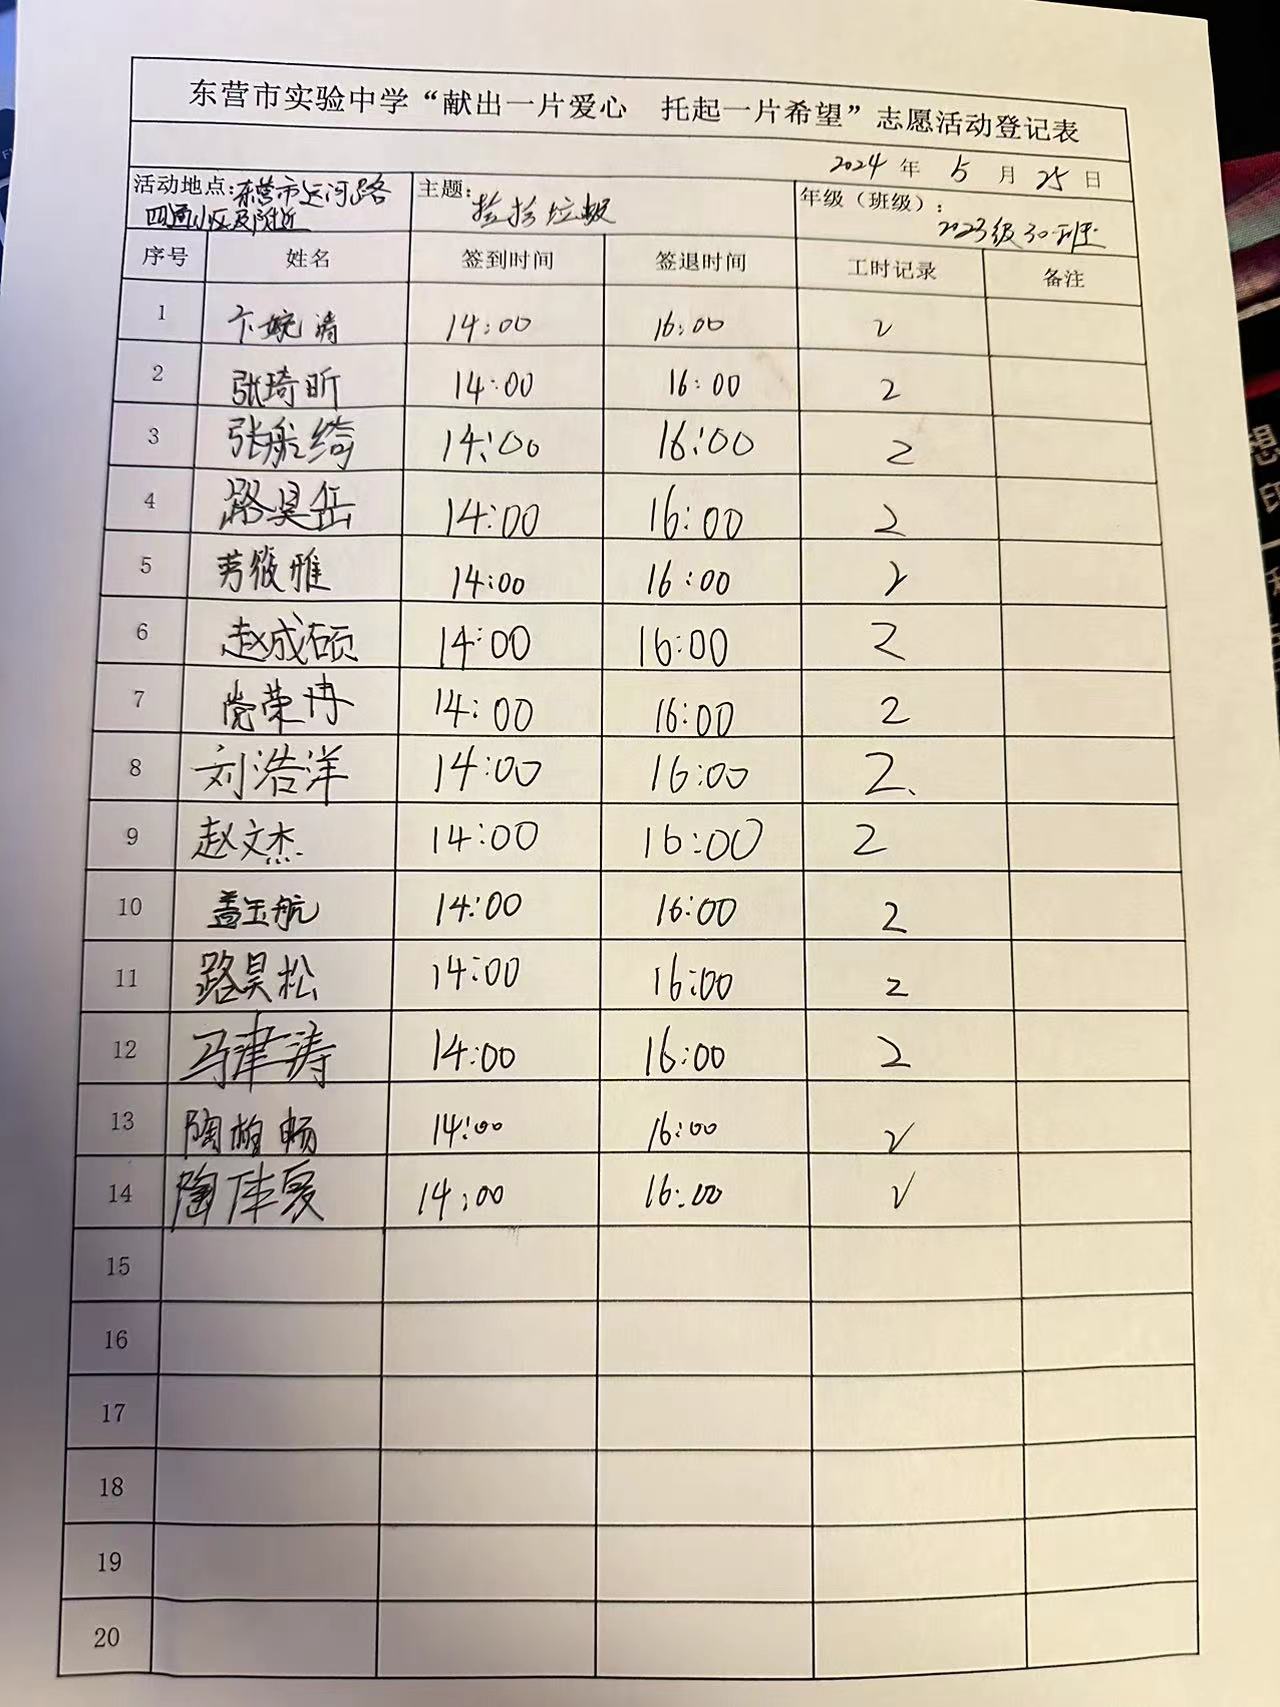 东营市实验中学“献出一片爱心 托起一片希望”志愿活动登记表
2024 年 5 月 25 日
活动地点:东营市运河路 主题: 年级（班级）:
四通小区及附近 捡拾垃圾 2023级30班
序号 姓名 签到时间 签退时间 工时记录 备注
1 卞婉清 14:00 16:00 2
2 张琦昕 14:00 16:00 2
3 张航绮 14:00 16:00 2
4 路昊岳 14:00 16:00 2
5 劳筱雅 14:00 16:00 2
6 赵成硕 14:00 16:00 2
7 党荣冉 14:00 16:00 2
8 刘浩洋 14:00 16:00 2
9 赵文杰 14:00 16:00 2
10 盖玉航 14:00 16:00 2
11 路昊松 14:00 16:00 2
12 马津涛 14:00 16:00 2
13 陶柏畅 14:00 16:00 2
14 陶 14:00 16:00 2
15
16
17
18
19
20
想
印